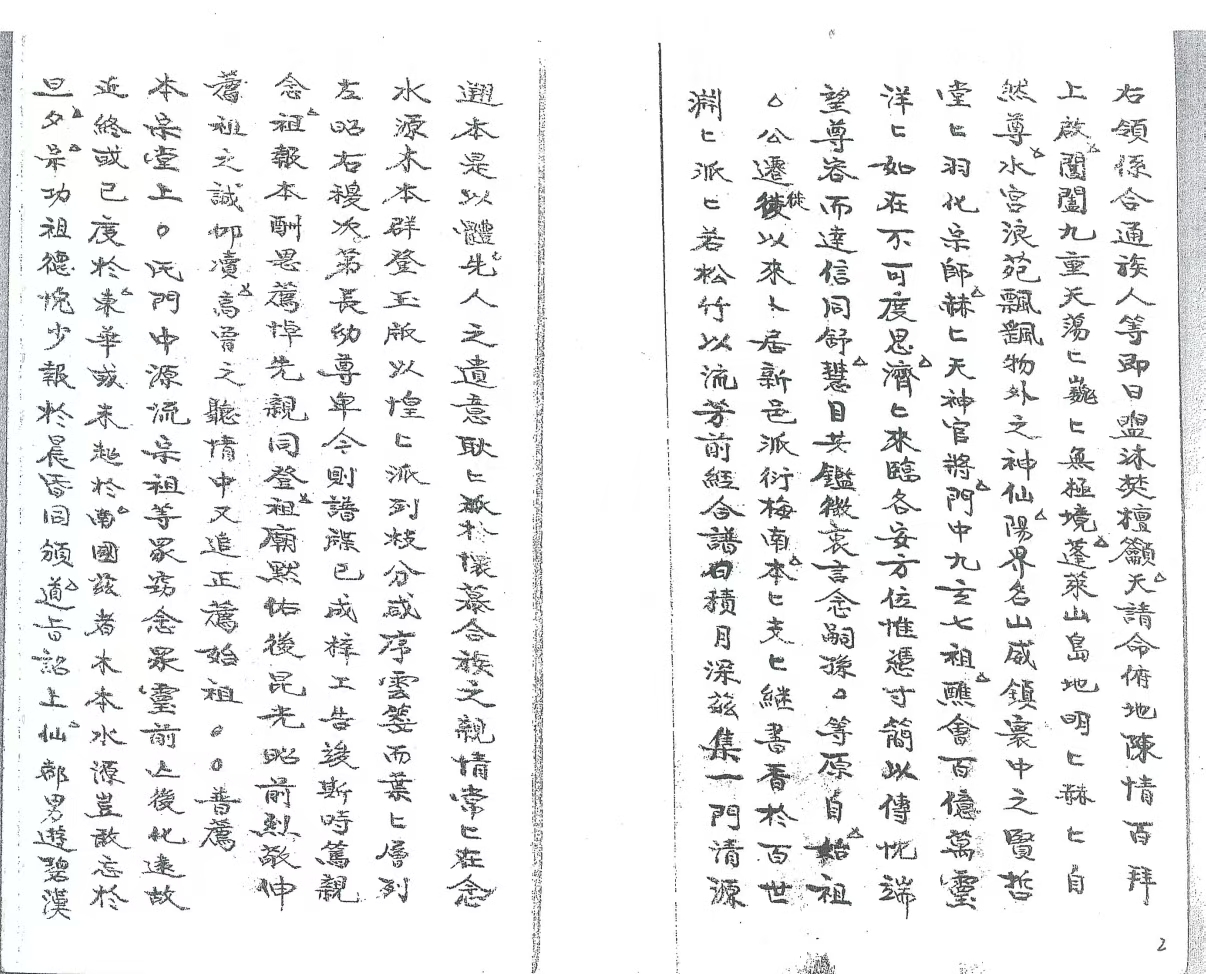 右領係合通族人等即日盥沐焚檀籲天請命俯地陳情百拜
上啟闔闔九重天蕩匕巍匕無極境蓬萊山島地明匕赫匕自
然尊水宮浪苑飄飄物外之神仙陽界名山威鎮寰中之賢哲
堂匕羽化宗師赫匕天神官將門中九玄七祖醮會百億萬靈
洋匕如在不可度思濟匕來臨各安方位惟憑寸簡以傳忱端
望尊容而達信同舒慧目共鑑微衷言念嗣孫○等原自始祖
○公遷徙以來卜居新邑派衍梅南本匕支匕継書香於百世
淵匕派匕若松竹以流芳前經合譜日積月深茲集一門清源
遡本是以體先人之遺意耿匕孤於懷慕合族之親情常匕在念
水源木本群登玉版以惶匕派列枝分咸序雲箋而葉匕層列
左昭右穆次第長幼尊卑今則譜牒已成梓工告竣斯時篤親
念祖報本酬恩薦悼先親同登祖廟默佑後昆光昭前烈敬伸
薦祖之誠仰瀆高曾之聽情中又追正薦始祖○○普薦
本宗堂上○氏門中源流宗祖等眾竊念眾靈前亾後化遠故
近終或已度於東華或未超於南國茲者木本水源豈敢忘於
旦夕宗功祖德愧少報於晨昏回頒道旨詔上仙都男遊碧漢
2